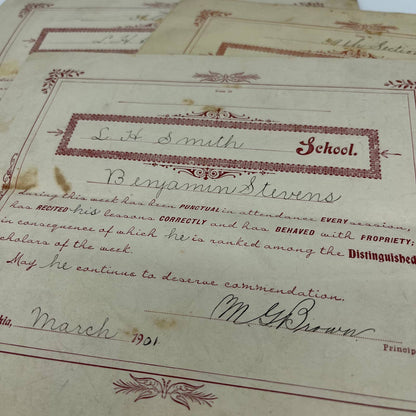 L H
4th Section
L H Smith School.
Benjamin Stevens
During this week has been PUNCTUAL in attendance EVERY session,
has RECITED his lessons CORRECTLY and has BEHAVED with PROPRIETY;
in consequence of which he is ranked among the Distinguished
scholars of the week.
May he continue to deserve commendation.
M G Brown
March 1901
Princip